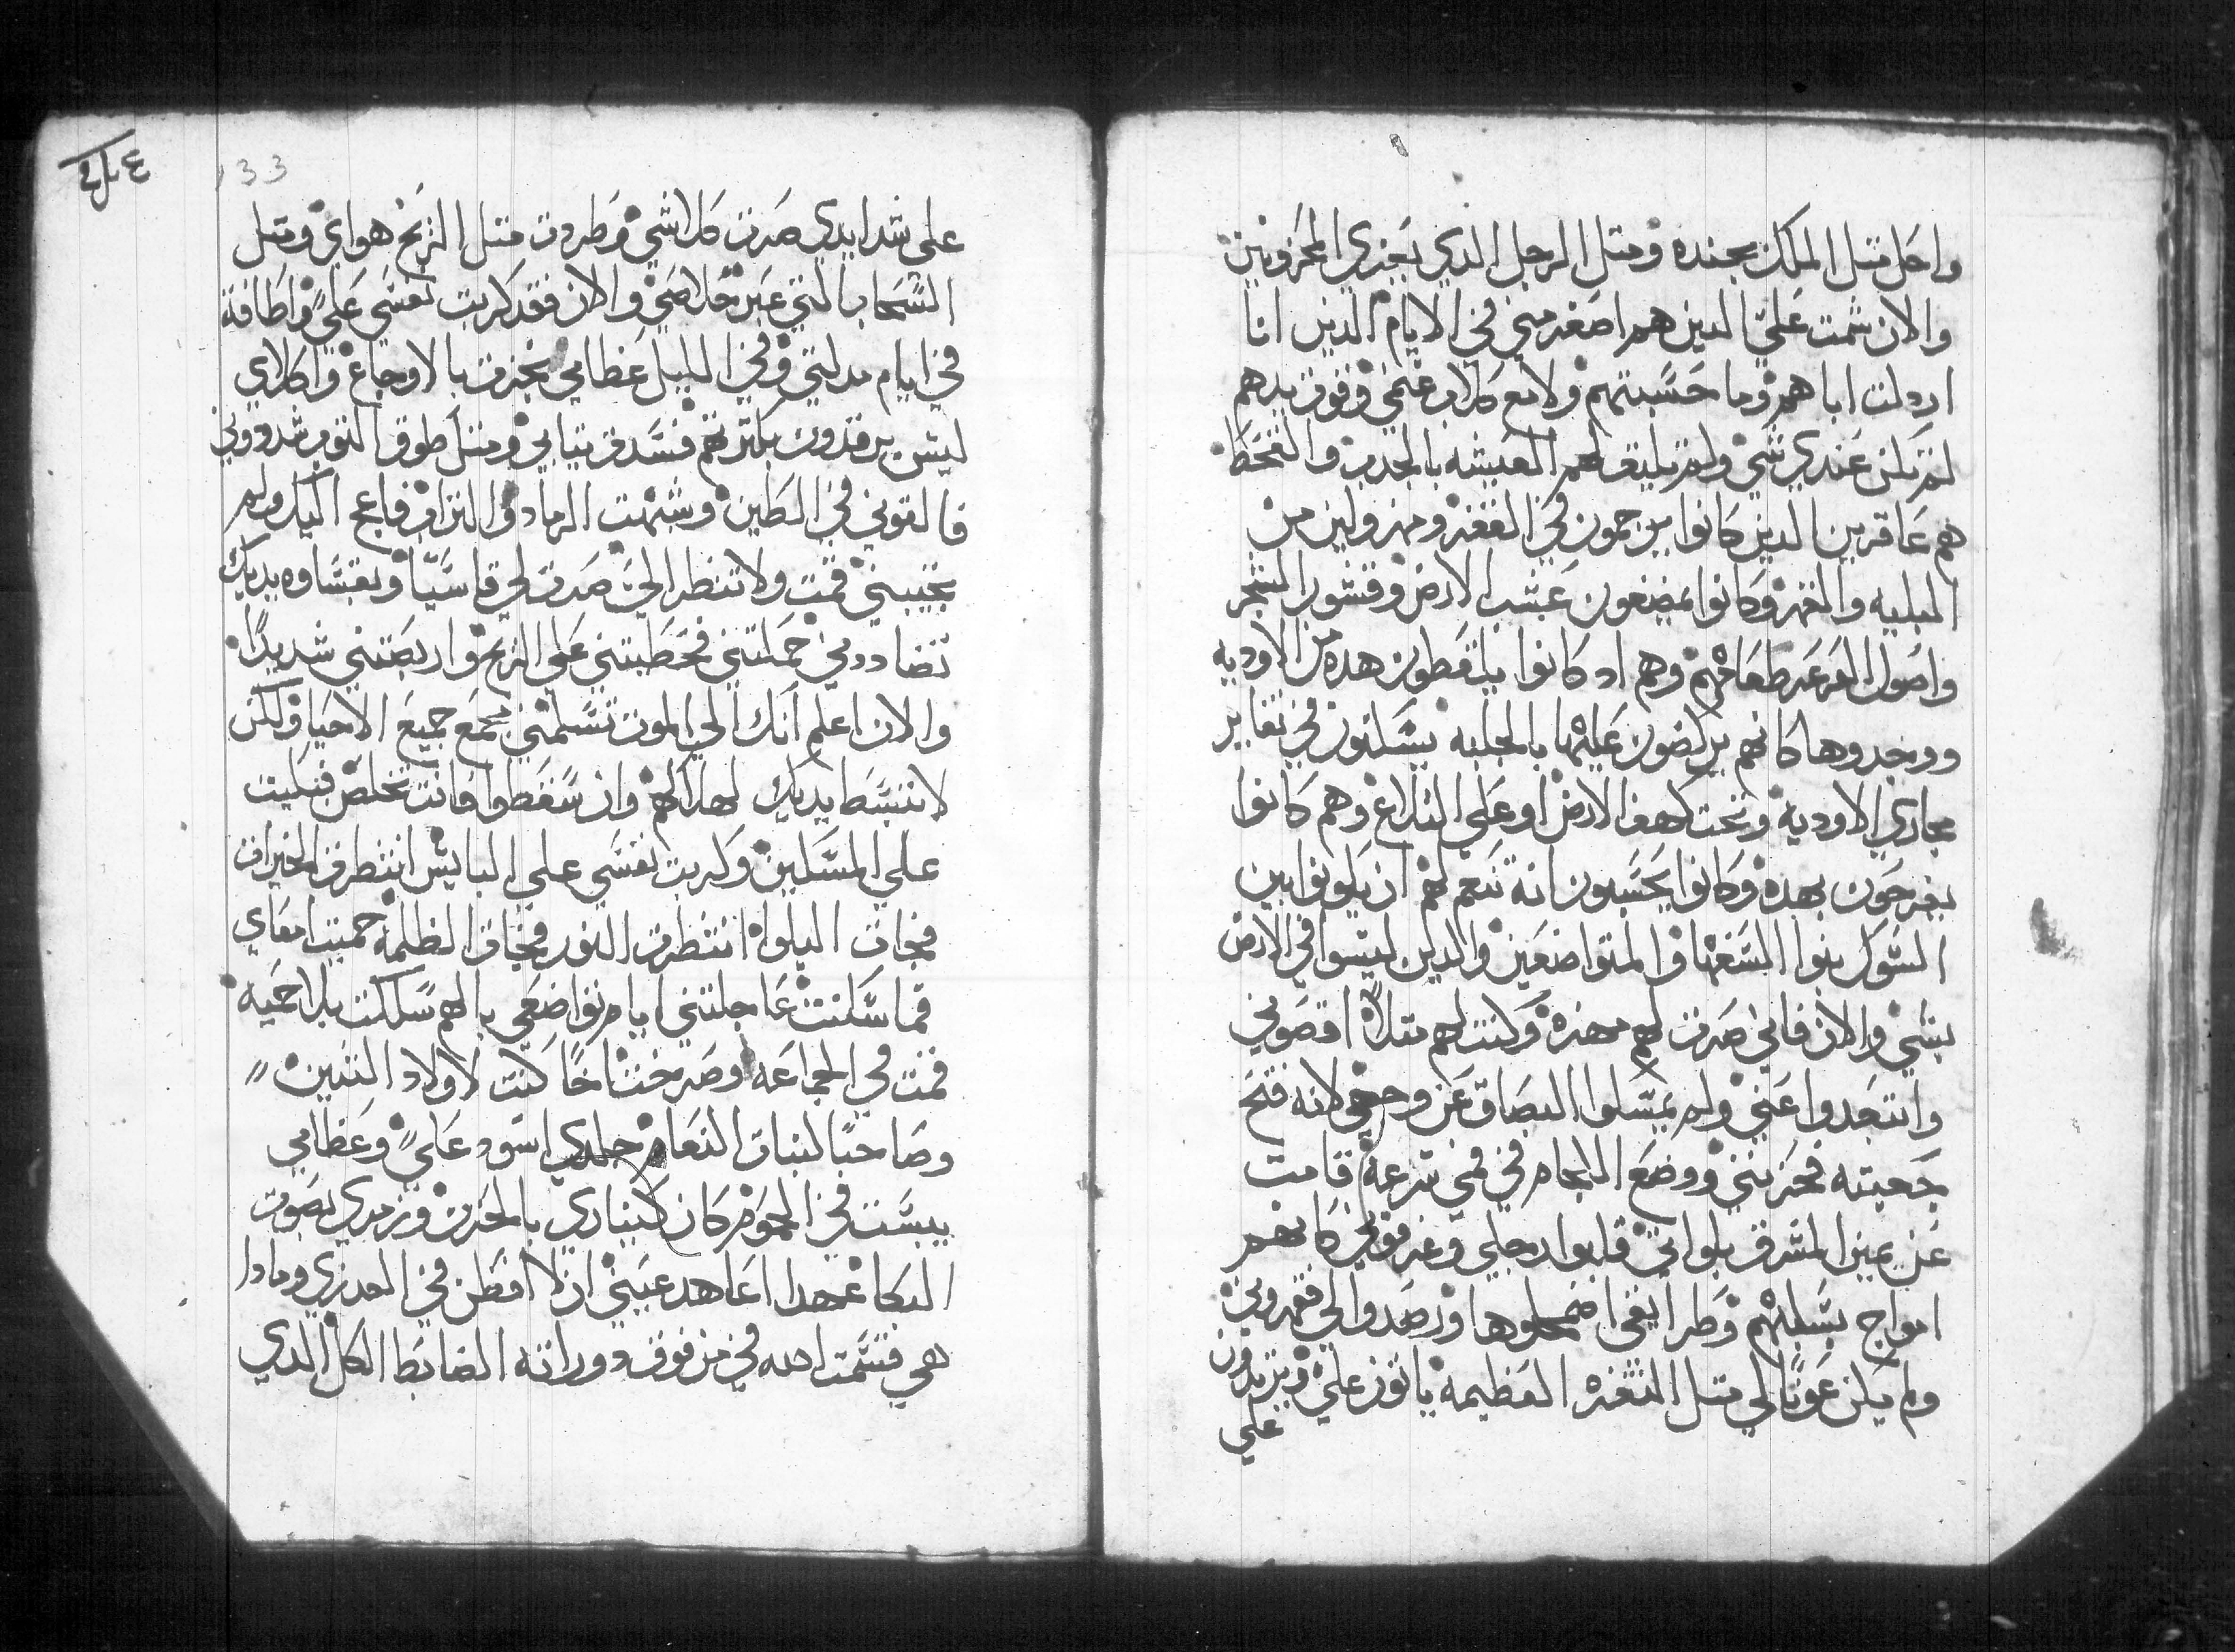 واحل متل الملك بجنده ومتل الرجل الدي يعزي المحزونين
والان شمت علي الدين هم اصغر مني في الايام الدين انا
اردلت اباهم وما حسبتهم ولا مع كلاب غنمي وقوة يدهم
لم تكن عندي شي ولم تليق لهم العيشه بالجدب والقحط
هم عاقرين الدين كانوا يرجمون في القفر ومهزولين من
البليه والقهر وكانوا يمضغون عشب الارض وقشور الشجر
واصول العرعر طعامهم وهم اد كانوا يلتقطون هده من الاوديه
ووجدوها كانهم يركضون عليها بالجلبه يسكنون في تقاير
مجاري الاوديه وتحت كهف الارض او علي التلاع وهم كانوا
يفرحون بهده وكانوا يحسبون انه تنعم لهم ان يكونوا بين
الشوك بنوا السفها والمتواضعين والدين ليسوا في الارض
بشي والان فاني صرت لهم مهزه وكنت لهم متلاً اقصوني
وابتعدوا عني ولم يمسكوا البصاق عن وجهي لانه فتح
جعبته فحزنني ووضع اللجام في فمي ترعة قامت
عن يمين المشرق بلواتي قلبوا رجلي وغرقوني كانهم
امواج بسبلهم وطرايقي اضمحلوها ورصدوا لي فقهروني
ولم يكن عونًا لي متل التغره العظيمه ياتون علي ويتردون
علي
133
علي شدايدي صرت كلا شي وطردت متل الريح هواي ومتل
السحاب التي عبر خلاصي والان فقد كربت نفسي علي واطافة
في ايام مدلتي وفي الليل عظامي نخزت بالاوجاع واكلاي
ليس يرقدون بكترتهم فسد ف تيابي ومتل طوق التوب شدوني
فالقوني في الطين وشبهت الرماد والتراب فاعج اليك ولم
تجيبني قمت ولا تنظر الي صرت لي قاسيًا وبقساوه يديك
تضاددني حملتني فحطيتني علي الريح واربصتني شديدًا
والان اعلم انك الي الموت تسلمني مجمع جميع الاحيا ولكن
لا تنبسط يديك لهلاكهم وان سقطوا فانت تخلص فبكيت
علي المسكين وكربت نفسي علي البايس انتظرت الخيرات
فجات البلوا انتظرت النور فجات الظلمة حميت امعاي
فما سكنت عاجلتني ايام تواضعي بالهم سلكت بلا حميه
قمت في الجماعه وصرخت اخًا كنت لاولاد التنين
وصاحبًا لبنات النعام جلدي اسود علي وعظامي
يبست في الحموم كان كيناري بالحزن وزمري بصوت
البكا عهدا اعاهد عيني ان لا افطن في العدري ومادا
هي قسمت الله في من فوق ووراته الضابط الكل الدي